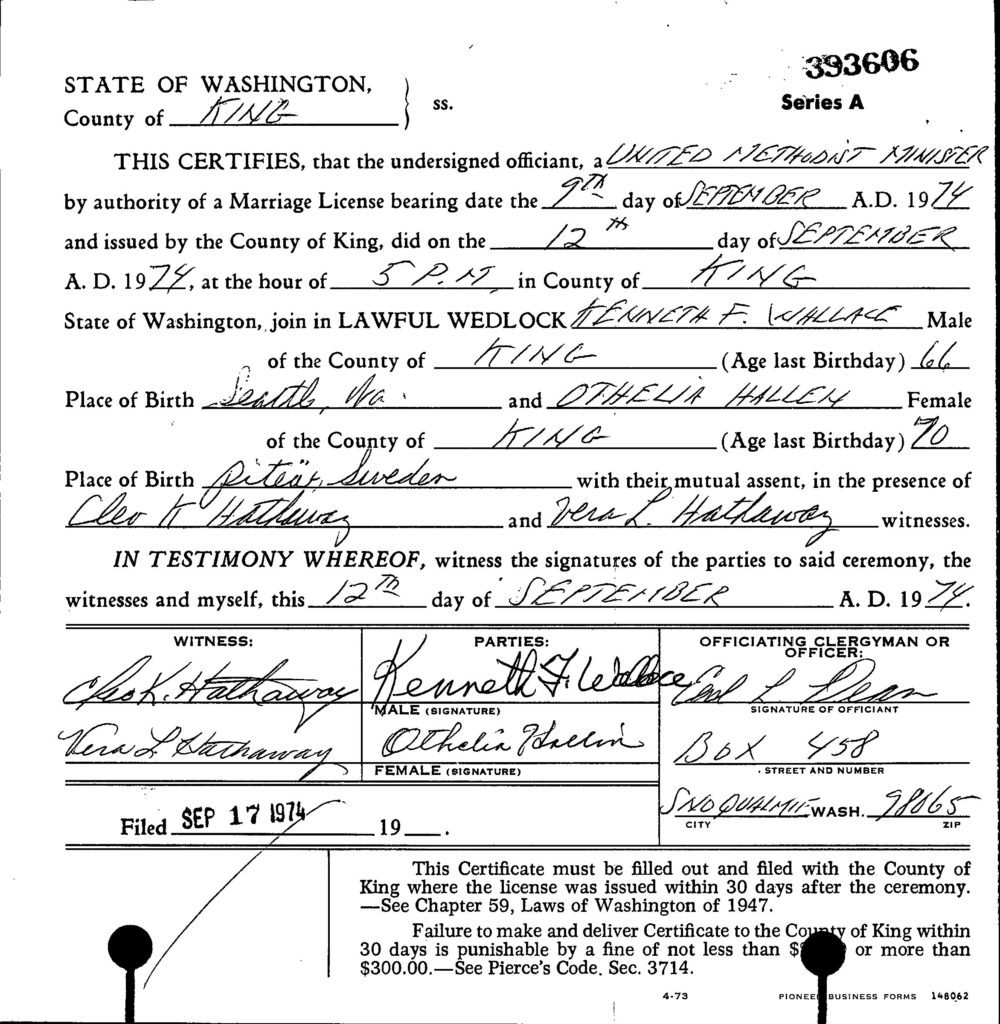 393606
STATE OF WASHINGTON,
County of KING ss.
Series A
THIS CERTIFIES, that the undersigned officiant, a UNITED METHODIST MINISTER
by authority of a Marriage License bearing date the 9TH day of SEPTEMBER A.D. 1974
and issued by the County of King, did on the 12th day of SEPTEMBER
A. D. 1974, at the hour of 5 P.M. in County of KING
State of Washington, join in LAWFUL WEDLOCK KENNETH F. WALLACE Male
of the County of KING (Age last Birthday) 66
Place of Birth Seattle, Wa. and OTHELIA HALLEN Female
of the County of KING (Age last Birthday) 70
Place of Birth Piteär, Sweden with their mutual assent, in the presence of
Cleo K Hathaway and Vera L. Hathaway witnesses.
IN TESTIMONY WHEREOF, witness the signatures of the parties to said ceremony, the
witnesses and myself, this 12Th day of SEPTEMBER A. D. 1974.
WITNESS: PARTIES: OFFICIATING CLERGYMAN OR
OFFICER:
Cleo K. Hathaway Kenneth F. Wallace Earl L Dean
MALE (SIGNATURE) SIGNATURE OF OFFICIANT
Vera L Hathaway Othelia Hallin BOX 458
FEMALE (SIGNATURE) STREET AND NUMBER
SNOQUALMIE WASH. 98065
CITY ZIP
Filed SEP 17 1974 19 .
This Certificate must be filled out and filed with the County of
King where the license was issued within 30 days after the ceremony.
—See Chapter 59, Laws of Washington of 1947.
Failure to make and deliver Certificate to the County of King within
30 days is punishable by a fine of not less than $ or more than
$300.00.—See Pierce's Code. Sec. 3714.
4-73 PIONEER BUSINESS FORMS 148062